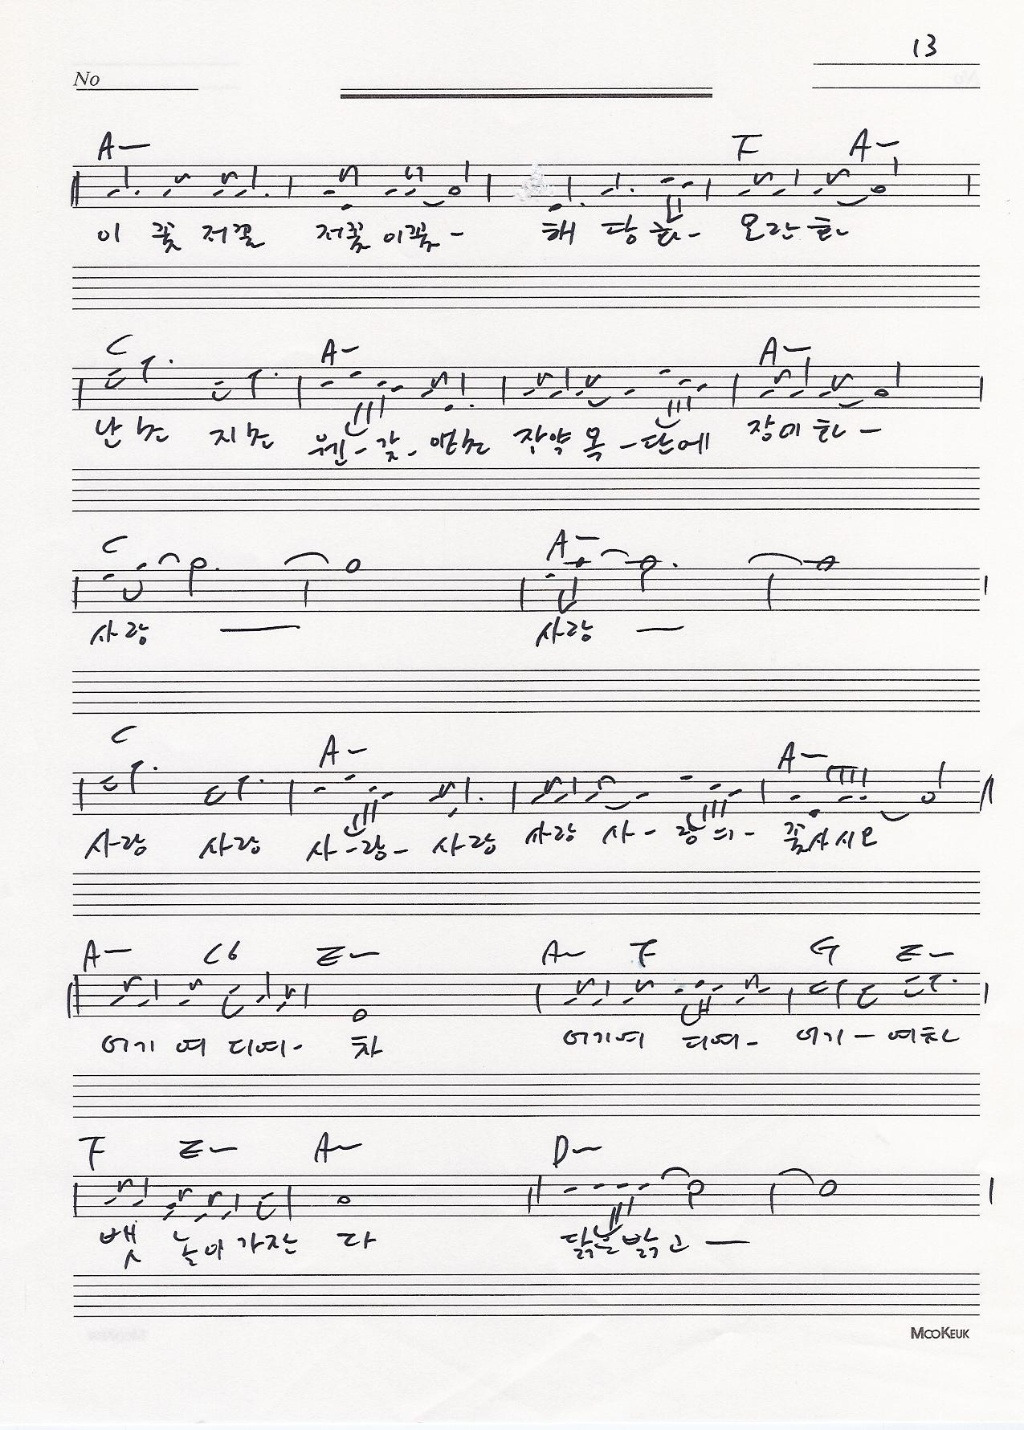 13
No
A− F A−
이 꽃 저꽃 저꽃 이꽃 - 해 당 화 - 모란 화
C A− A−
난초 지초 웬 - 갖 - 향초 작약 목 - 단에 장미 화 -
C A−
사랑 — 사랑 —
C A− A−
사랑 사랑 사 - 랑 - 사랑 사랑 사 - 랑 의 - 꽃사시오
A− C6 E− A− F G E−
어기 여 디여 - 차 어기여 디여 - 어기 - 여차
F E− A− D−
뱃 놀이 가잔 다 닭은 밝고 —
MOOKEUK